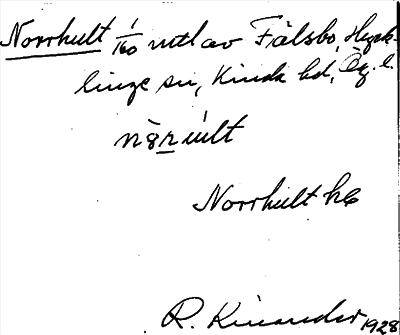 Norrhult 1/160 mtl av Fälsbo, Hyck-
linge sn, Kinda hd, Ög. l.
Norrhult hs
R. Kinander 1928